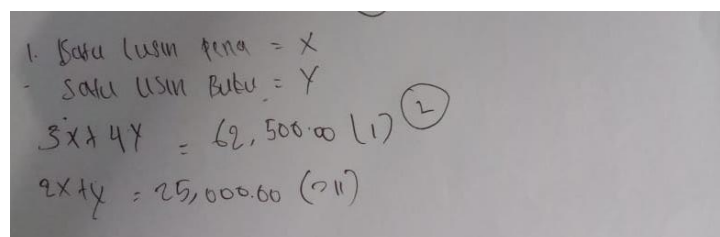 1. Satu lusin pena = X
- Satu usin Buku = Y
3x + 4y = 62,500.00 (1) 2
2x + y = 25,000.00 (11)